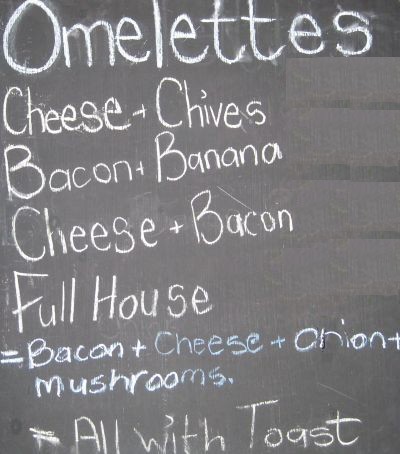 Omelettes
Cheese + Chives
Bacon + Banana
Cheese + Bacon
Full House
= Bacon + Cheese + Onion +
mushrooms.
= All with Toast